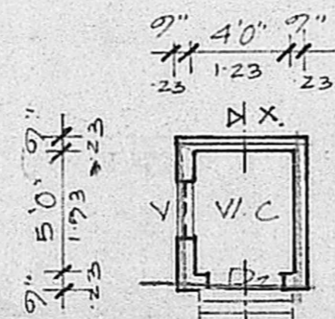 9" 4'0" 9"
.23 1.23 23
X.
9" .23
5'0" 1.93
9" .23
V W.C
D2